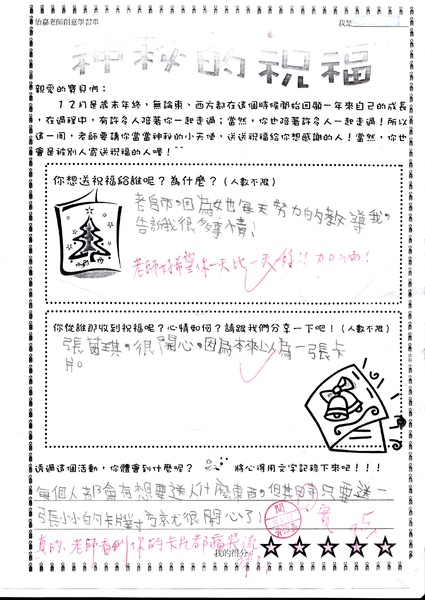 怡嘉老師創意學習單
我是
神秘的祝福
親愛的寶貝們：
１２月是歲末年終，無論東、西方都在這個時候開始回顧一年來自己的成長
，在過程中，有許多人陪著你一起走過；當然，你也陪著許多人一起走過！所以
這一周，老師要請你當當神秘的小天使，送送祝福給你想感謝的人！當然，你也
會是被別人寄送祝福的人喔！^^
你想送祝福給誰呢？為什麼？（人數不限）
老師，因為她每天努力的教導我，
告訴我很多事情！
老師好希望你一天比一天好!!加油!
你從誰那收到祝福呢？心情如何？請跟我們分享一下吧！（人數不限）
張茵琪，很開心，因為本來以為一張卡
片。
透過這個活動，你體會到什麼呢？
將心得用文字記錄下來吧！！！
每個人都會有想要送人什麼東西，但其實只要送一
張小小的卡片對方就很開心了！
95
真的，老師看到你的卡片都痛哭流
我的得分：